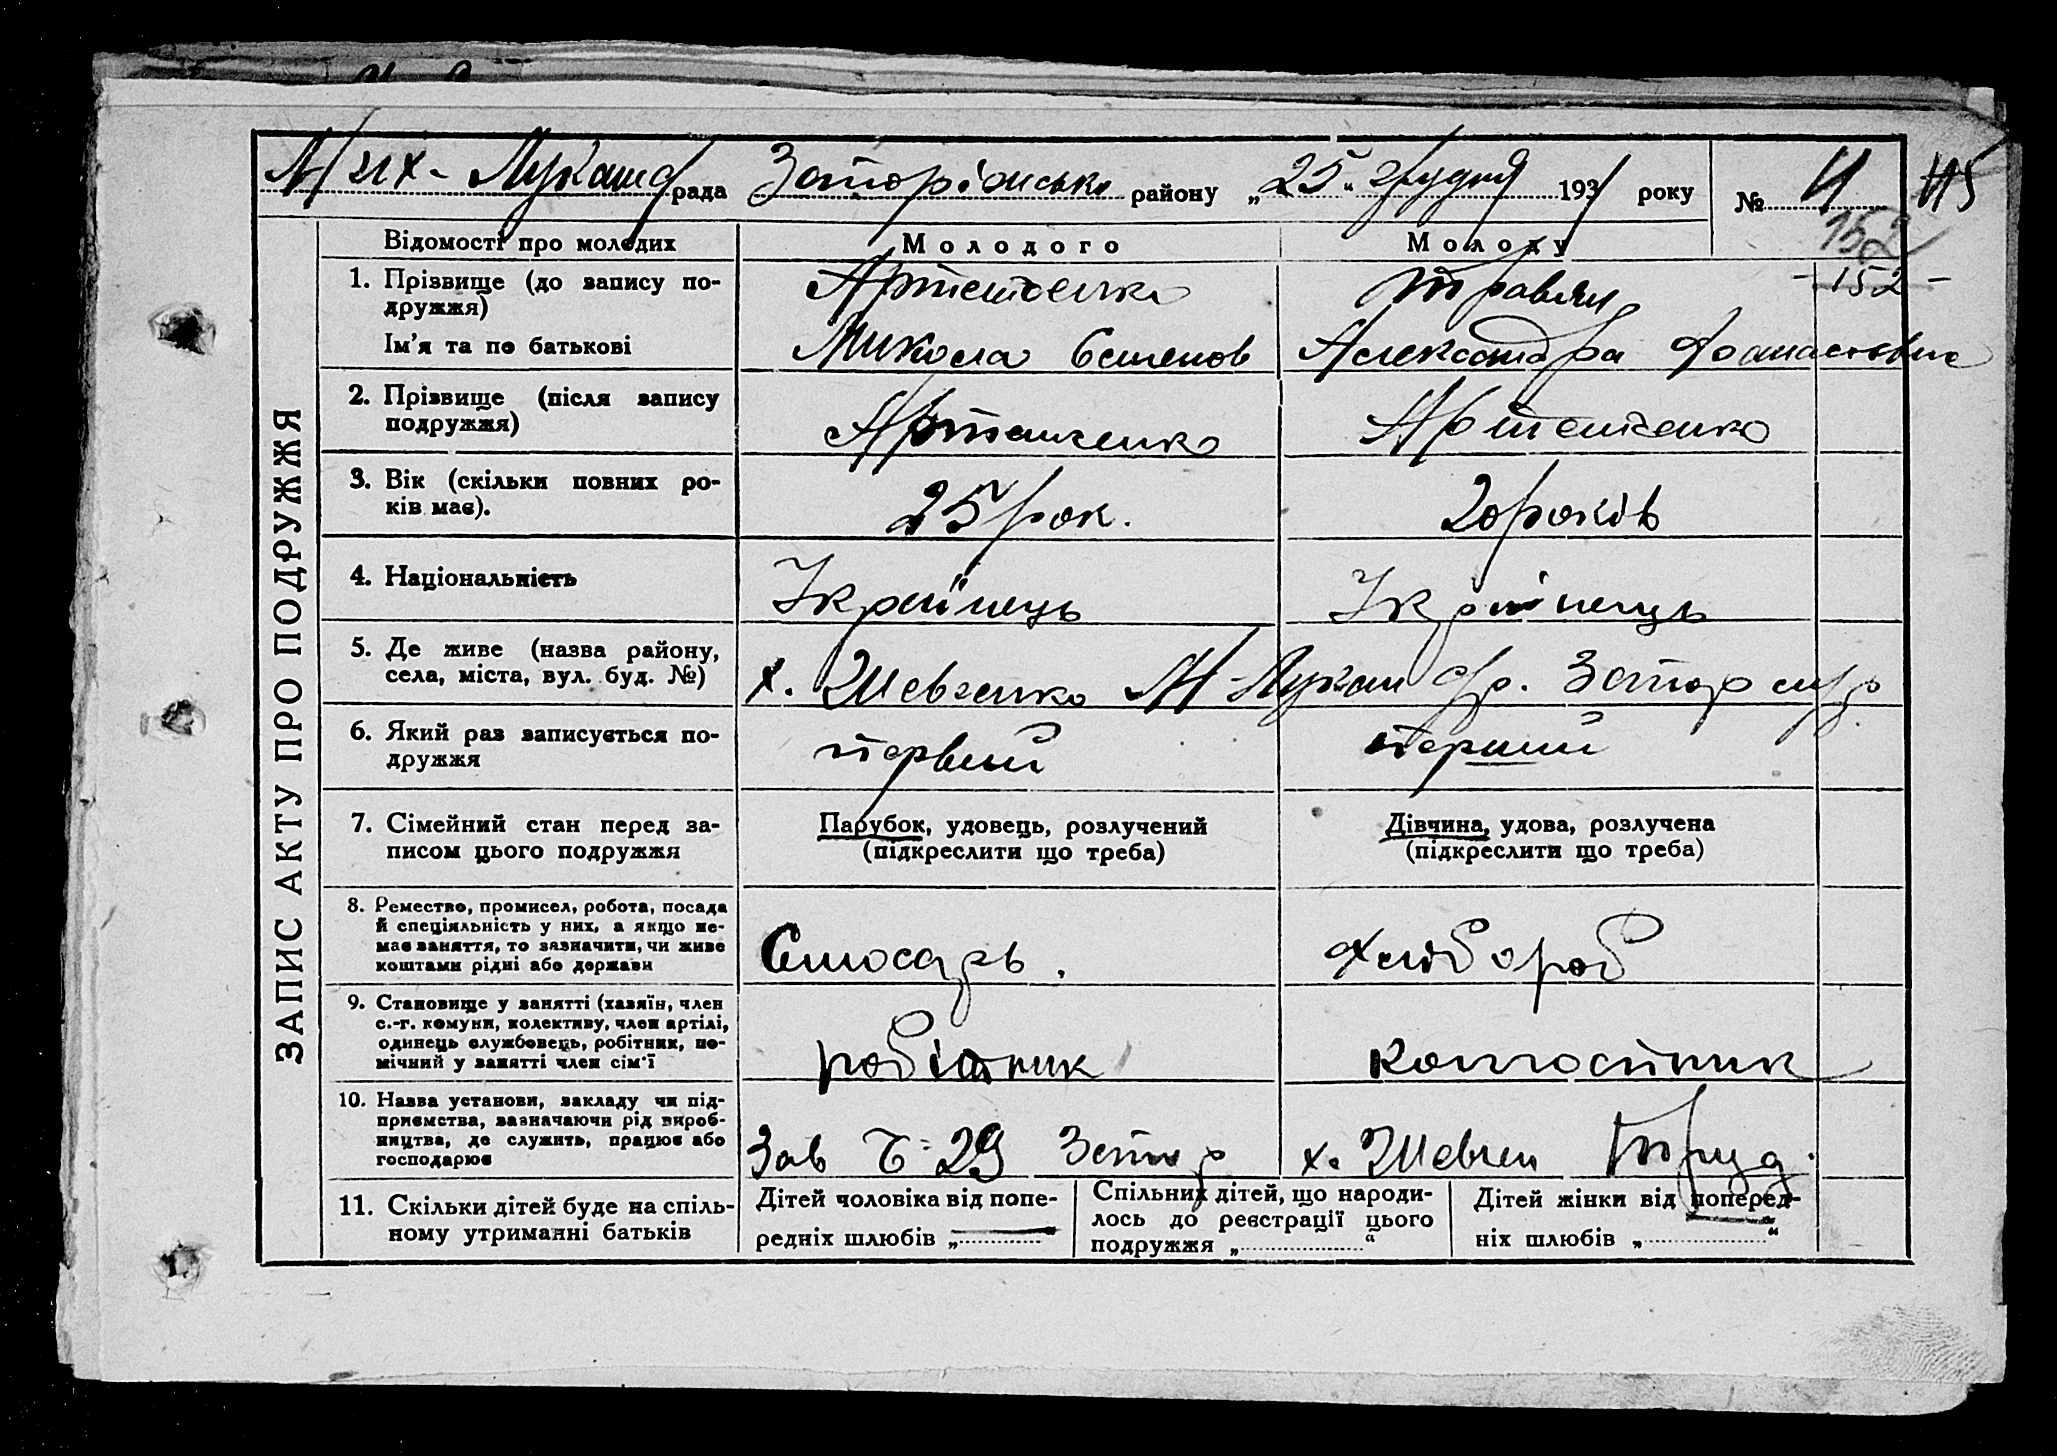 Мих-Лукашф рада Запоріжсько району „25“ грудня 1931 року № 11 115
152
Відомості про молодих Молодого Молоду
152
1. Прізвище (до запису по-
дружжя)
Артеменко
Ім'я та по батькові Микола Семенов Александра
2. Прізвище (після запису
подружжя)
Артеменко Артеменко
3. Вік (скільки повних ро-
ків має).
25 рок. 20 років
4. Національність Українець Українець
5. Де живе (назва району,
села, міста, вул. буд. №)
х. Шевченко М-Лукаш
6. Який раз записується по-
дружжя
первий перший
7. Сімейний стан перед за-
писом цього подружжя
Парубок, удовець, розлучений
(підкреслити що треба)
Дівчина, удова, розлучена
(підкреслити що треба)
8. Ремество, промисел, робота, посада
й спеціяльність у них, а якщо не-
має заняття, то зазначити, чи живе
коштами рідні або держави
Слюсарь. Хлібороб
9. Становище у занятті (хазяїн, член
с.-г. комуни, колективу, член артілі,
одинець службовець, робітник, по-
мічний у занятті член сім'ї
робітник колгоспник
10. Назва установи, закладу чи під-
приємства, зазначаючи рід вироб-
ництва, де служить, працює або
господарює
Зав 29 Запор х. Шевчен Труд.
11. Скільки дітей буде на спіль-
ному утриманні батьків
Дітей чоловіка від попе-
редніх шлюбів „—
Спільних дітей, що народи-
лось до реєстрації цього
подружжя „ “
Дітей жінки від поперед-
ніх шлюбів „ — “
ЗАПИС АКТУ ПРО ПОДРУЖЖЯ